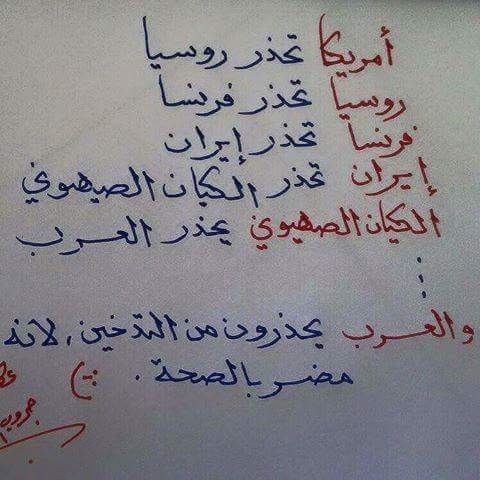 أمريكا تحذر روسيا
روسيا تحذر فرنسا
فرنسا تحذر إيران
إيران تحذر الكيان الصيهوني
الكيان الصهيوني يحذر العرب
:
والعرب يحذرون من التدخين، لانه
مضر بالصحة . (: